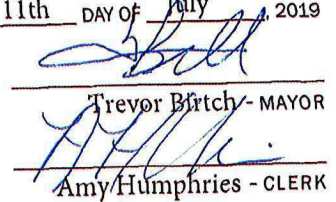 11th DAY OF July, 2019
Trevor Birtch - MAYOR
Amy Humphries - CLERK